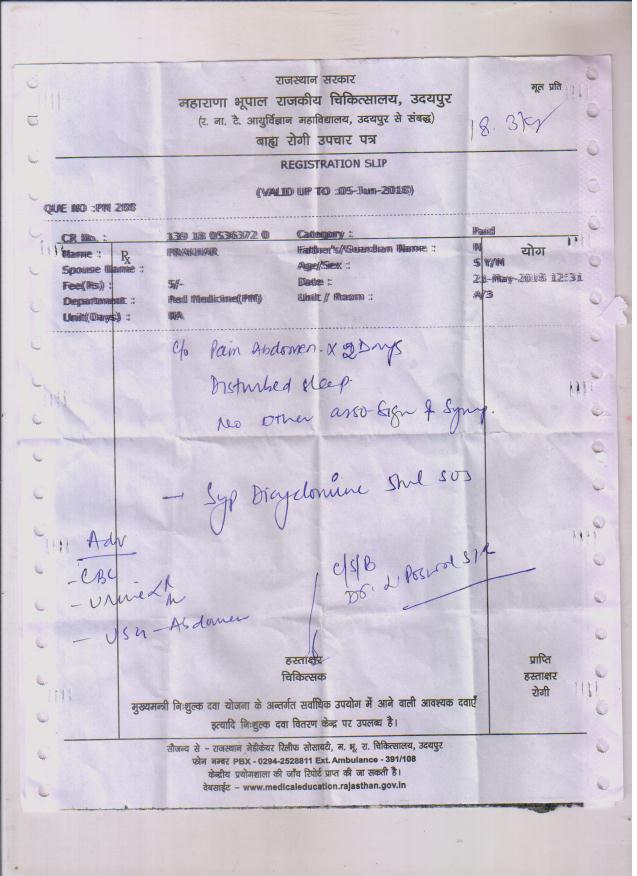 राजस्थान सरकार
महाराणा भूपाल राजकीय चिकित्सालय, उदयपुर
मूल प्रति
(र. ना. टै. आयुर्विज्ञान महाविद्यालय, उदयपुर से संबद्ध)
बाह्य रोगी उपचार पत्र
REGISTRATION SLIP
(VALID UP TO :05-Jun-2018)
QUE NO :PM 208
CR No. : 139 18 0536372 0 Category : Paid
Name : PRAKHAR Father's/Guardian Name : N
℞ योग
Spouse Name : Age/Sex : 5 Y/M
Fee(Rs) : 5/- Date : 21-May-2018 12:31
Department : Ped Medicine(PM) Unit / Room : A/3
Unit(Days) : NA
c/o Pain Abdomen x 2 Days
Disturbed sleep.
No other asso sign & symp.
→ Syp Dicyclomine 5ml SOS
Adv
- CBC
- Urine
- USG - Abdomen
C/S/B
Dr.
हस्ताक्षर
चिकित्सक
प्राप्ति
हस्ताक्षर
रोगी
मुख्यमन्त्री निःशुल्क दवा योजना के अन्तर्गत सर्वाधिक उपयोग में आने वाली आवश्यक दवाएँ
इत्यादि निःशुल्क दवा वितरण केन्द्र पर उपलब्ध है।
सौजन्य से - राजस्थान मेडीकेयर रिलीफ सोसायटी, म. भू. रा. चिकित्सालय, उदयपुर
फोन नम्बर PBX - 0294-2528811 Ext. Ambulance - 391/108
केन्द्रीय प्रयोगशाला की जाँच रिपोर्ट प्राप्त की जा सकती है।
वेबसाईट - www.medicaleducation.rajasthan.gov.in